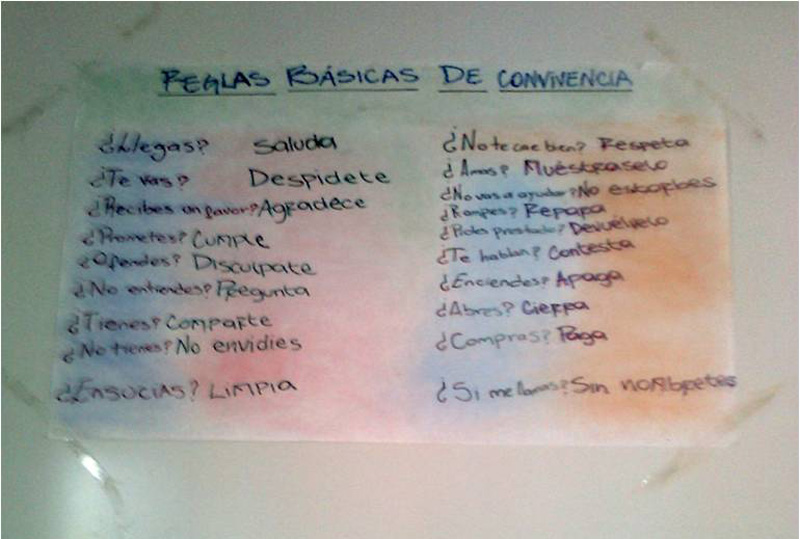 REGLAS BÁSICAS DE CONVIVENCIA
¿LLegas? Saluda
¿Te vas? Despidete
¿Recibes un favor? Agradece
¿Prometes? Cumple
¿Ofendes? Disculpate
¿No entiendes? Pregunta
¿Tienes? Comparte
¿No tienes? No envidies
¿Ensucias? Limpia
¿No te cae bien? Respeta
¿Amas? Muéstraselo
¿No vas a ayudar? No estorbes
¿Rompes? Repara
¿Pides prestado? Devuélvelo
¿Te hablan? Contesta
¿Enciendes? Apaga
¿Abres? Cierra
¿Compras? Paga
¿Si me llamas? Sin